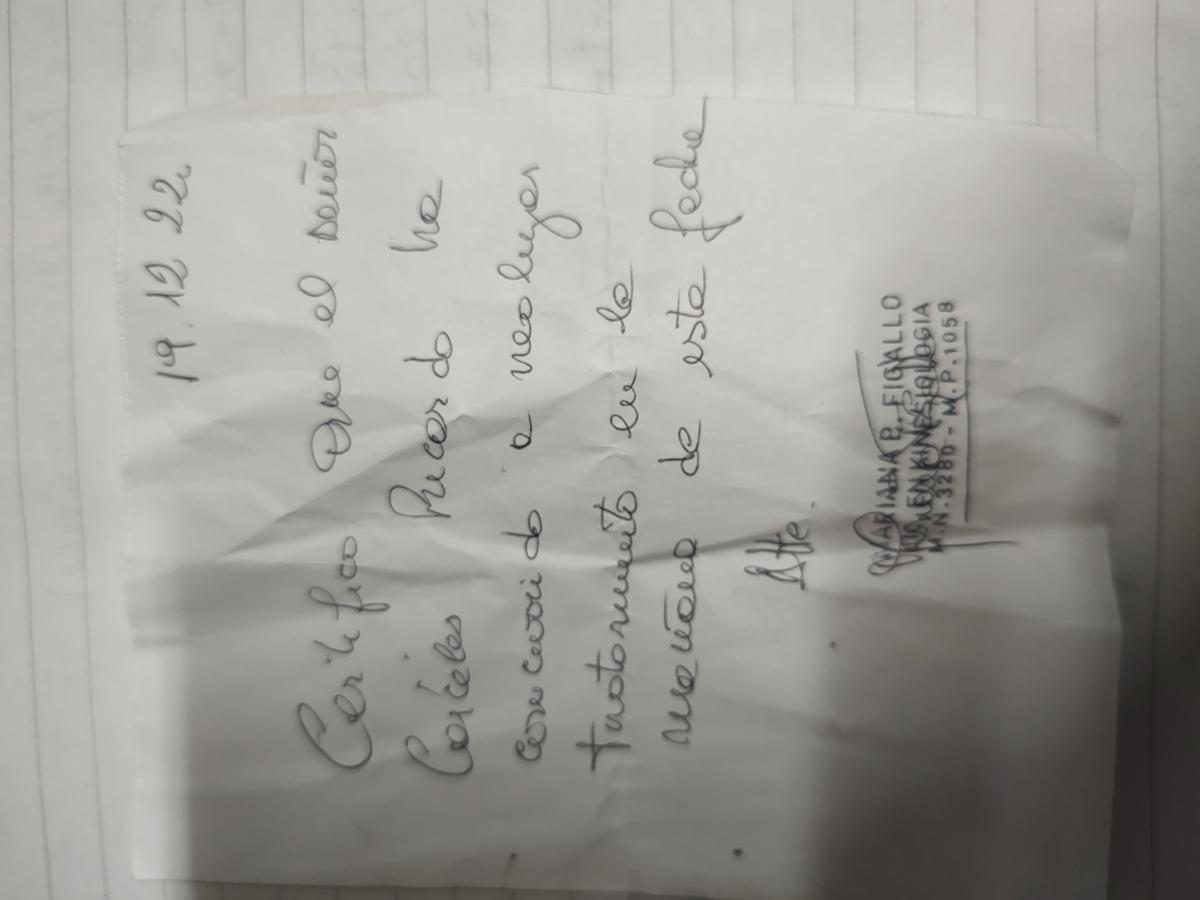 19.12.22.
Certifico Que el señor
Corceles Ricardo ha
concurrido a realizar
tratamiento en la
mañana de esta fecha
Atte.
MARIANA P. FIGALLO
EN KINESIOLOGIA
M.N.3280 - M.P.1058